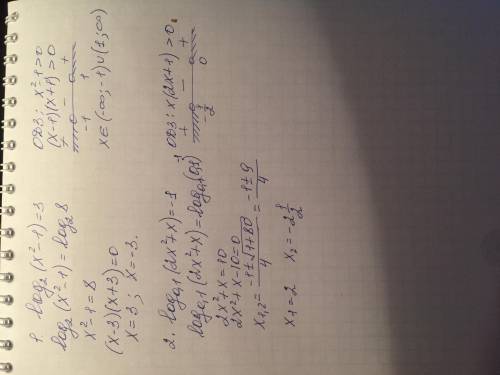 1. log₂(x²-1)=3
log₂(x²-1)=log₂8
x²-1=8
(x-3)(x+3)=0
x=3; x=-3.
ОДЗ: x²-1>0
(x-1)(x+1)>0
+ - +
-1 1
x∈(-∞;-1)∪(1;∞)
2. log₀,₁(2x²+x)=-1
log₀,₁(2x²+x)=log₀,₁(0,1)⁻¹
2x²+x=10
2x²+x-10=0
x₁,₂=(-1±√(1+80))/4=(-1±9)/4
x₁=2 x₂=-2 1/2
ОДЗ: x(2x+1)>0.
+ - +
-1/2 0